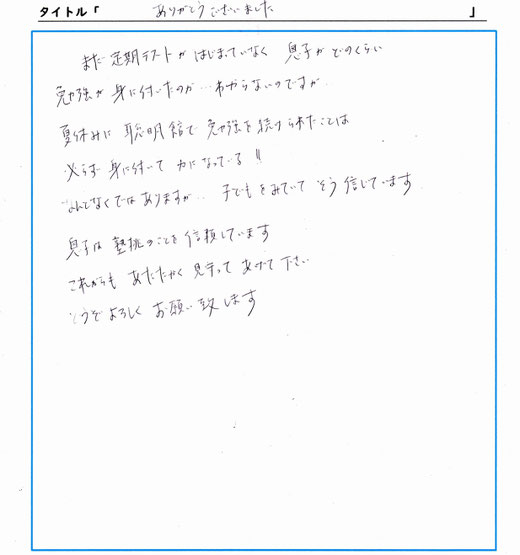 タイトル「 ありがとうございました 」
まだ 定期テストが はじまっていなく 息子が どのくらい
勉強が 身に付いたのか… わからないのですが…
夏休みに 聡明館で 勉強を 続けられたことは
必らず 身に付いて 力になっている!!
なんとなくではありますが… 子どもをみていて そう信じています
息子は 塾 のことを 信頼しています
これからも あたたかく 見守って あげて下さい
どうぞよろしく お願い致します